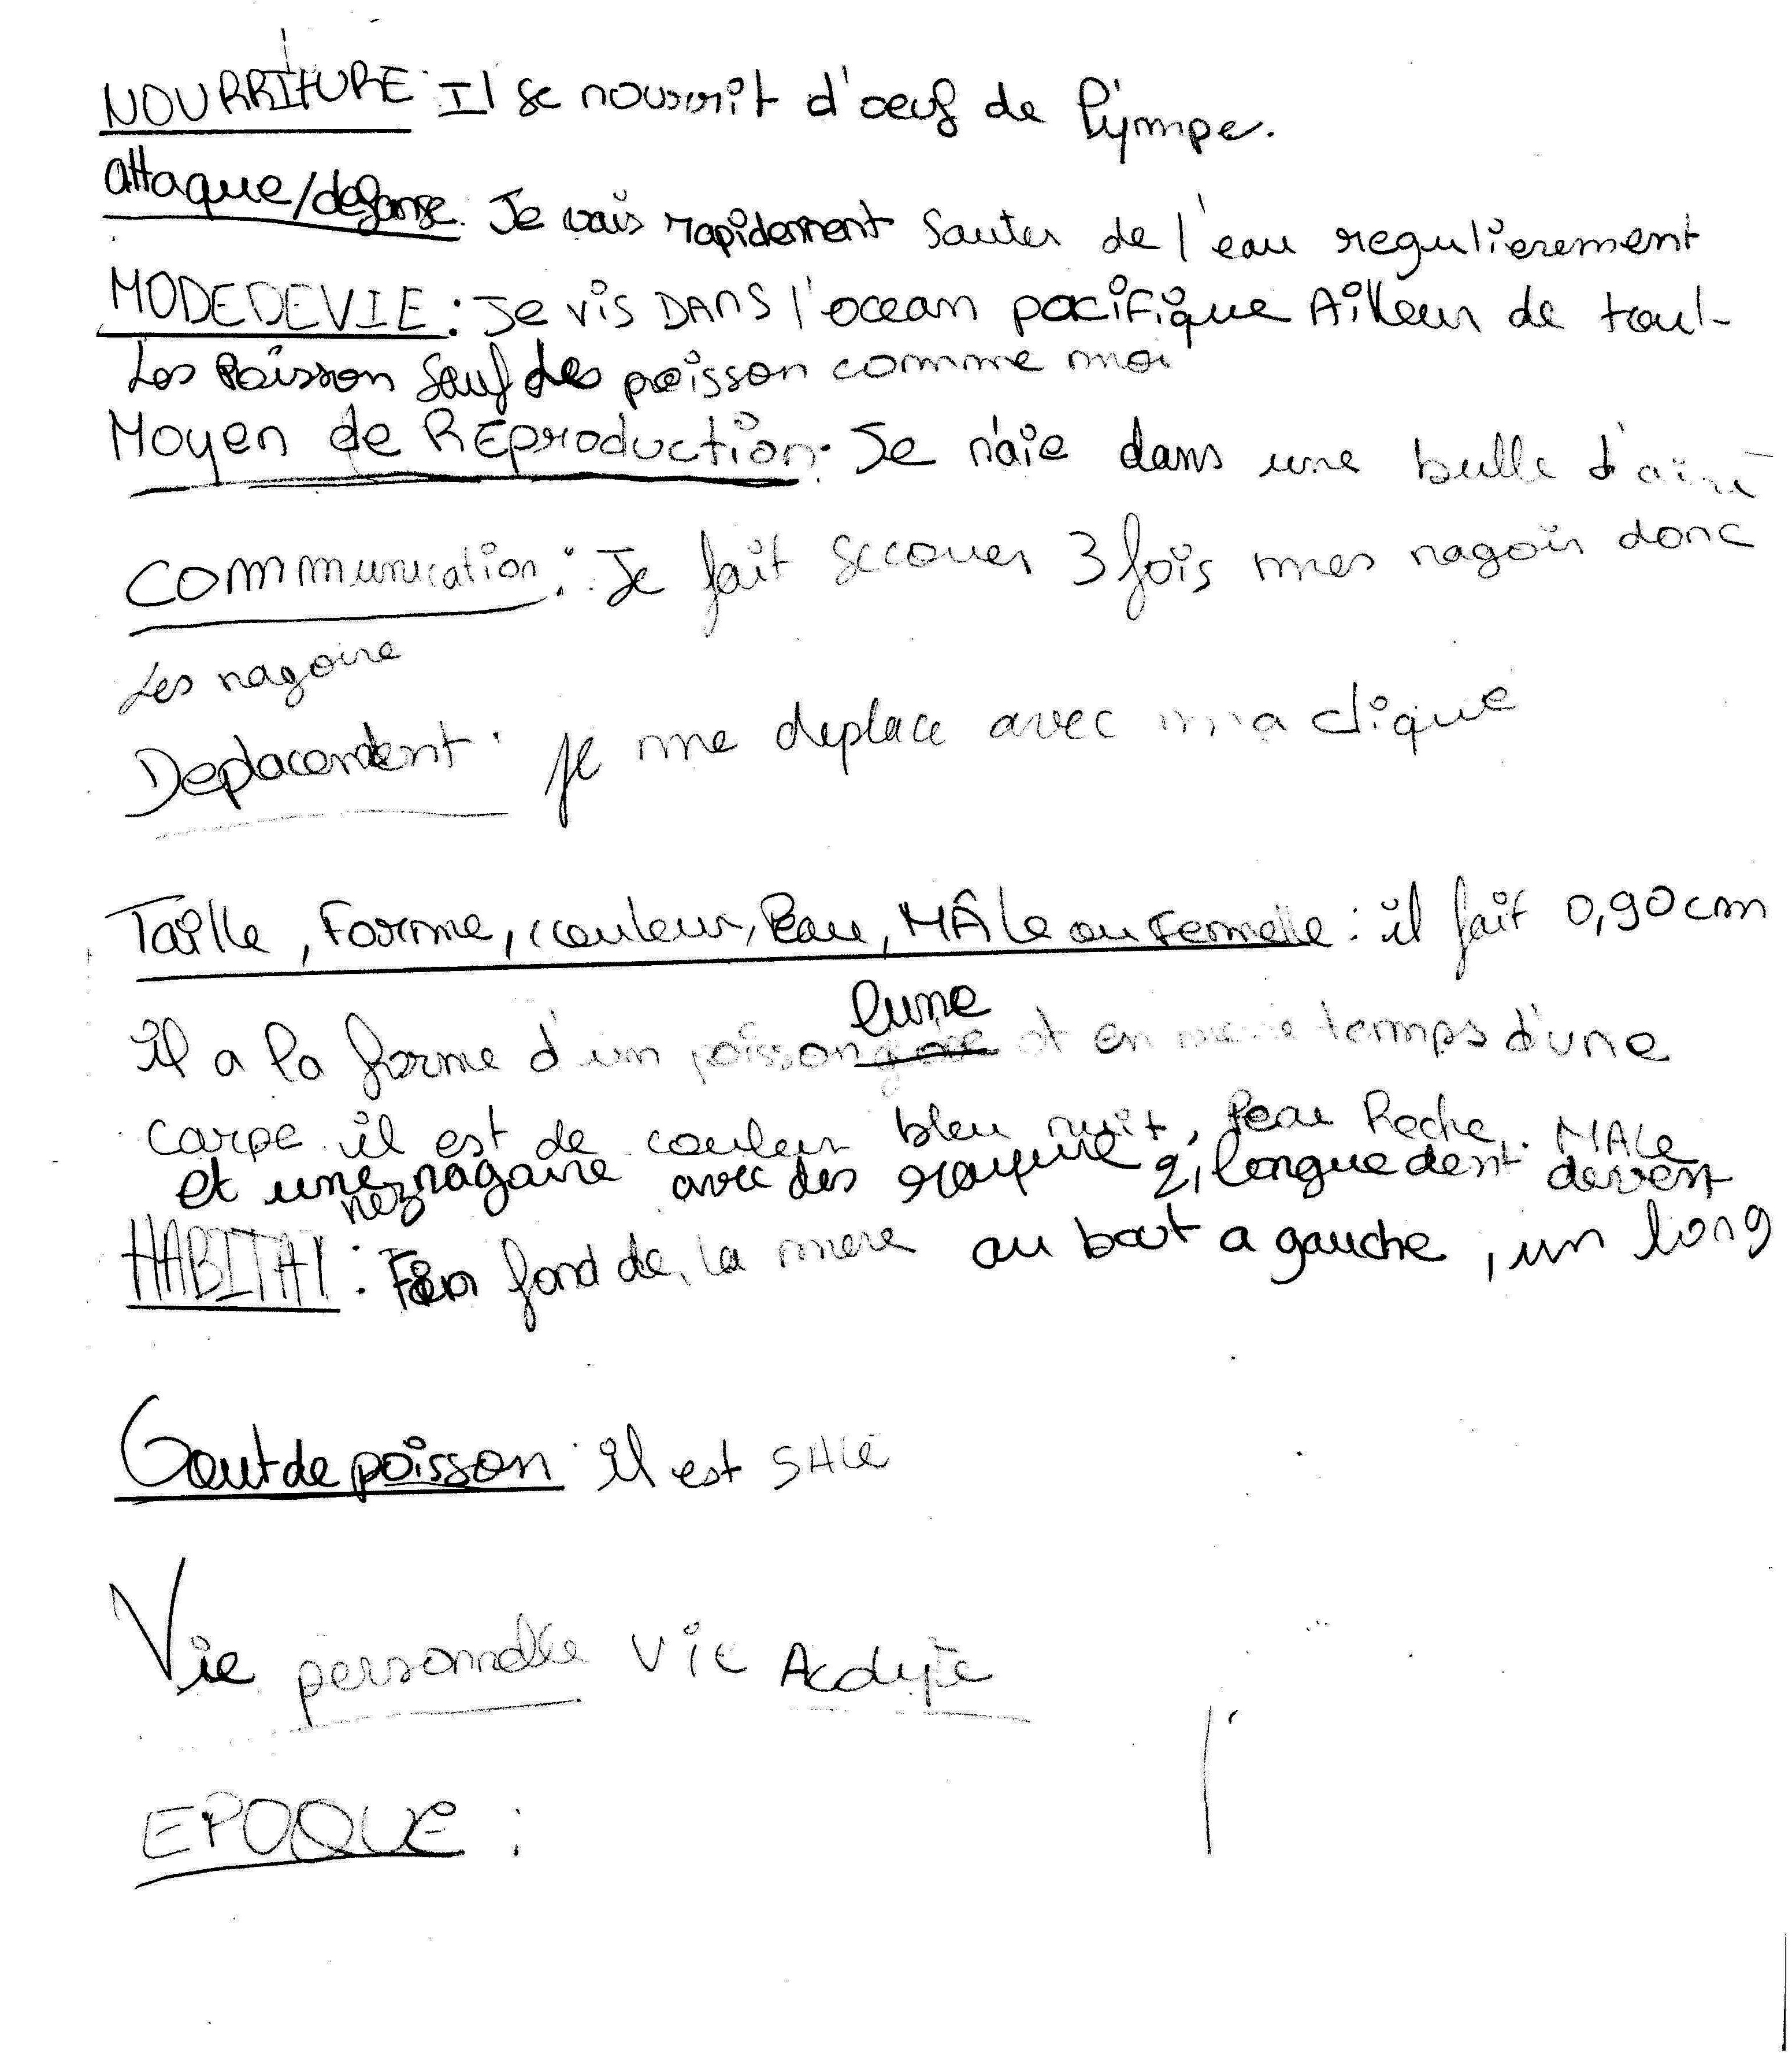 NOURRITURE : Il se nourrit d'oeuf de l'ympe.
attaque/defense : Je vais rapidement sauter de l'eau regulierement
MODE DE VIE : Je vis DANS l'ocean pacifique Ailleur de tout
Les Poisson sauf des poisson comme moi
Moyen de REproduction : Je n'aie dans une bulle d'aire
communication : Je fait secouer 3 fois mes nagoir donc
Les nagoire
Deplacement : je me deplace avec ma clique
Taille, Forme, couleur, Peau, MÂle ou Femelle : il fait 0,90 cm
lune
il a la forme d'un poisson et en meme temps d'une
carpe il est de couleur bleu nuit, Peau Reche. MALe
et une nagoire avec des rayure 2, longue dent devent
nez
HABITAT : fond de la mere au bout a gauche, un long
Gout de poisson il est SALé
Vie personnelle vie
EPOQUE :